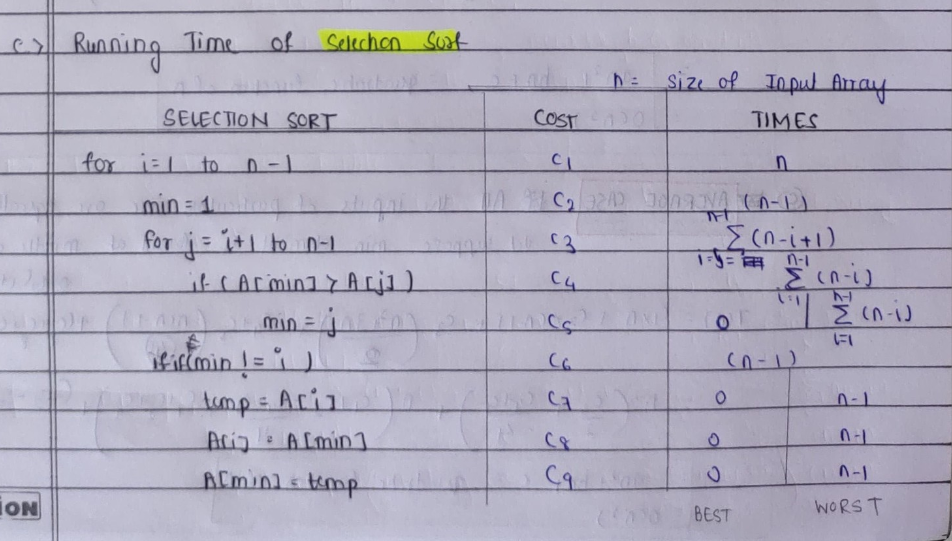 c> Running Time of Selection Sort
n = size of Input Array
SELECTION SORT COST TIMES
for i=1 to n-1 C1 n
min = 1 C2 (n-1)
for j = i+1 to n-1 C3 n-1 Σ (n-i+1) i=
if (A[min] > A[j]) C4 n-1 Σ (n-i) i=1
min = j C5 0 | n-1 Σ (n-i) i=1
if (min != i) C6 (n-1)
temp = A[i] C7 0 n-1
A[i] = A[min] C8 0 n-1
A[min] = temp C9 0 n-1
ION BEST WORST